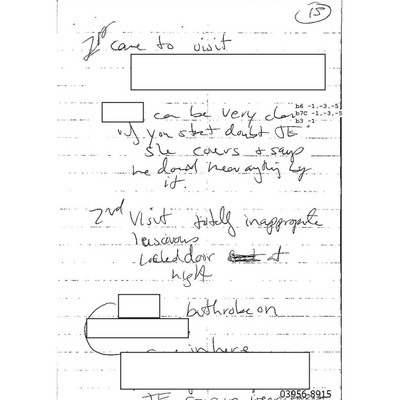 15
1st came to visit
b6 -1,-3,-5
can be very
b7C -1,-3,-5
b3 -1
if you start doubt JE
she covers & says
he doesn't mean anything by
it.
2nd Visit totally inappropriate
lascivious
Locked door at
night
bathrobe on
in here
03956-8915
JE